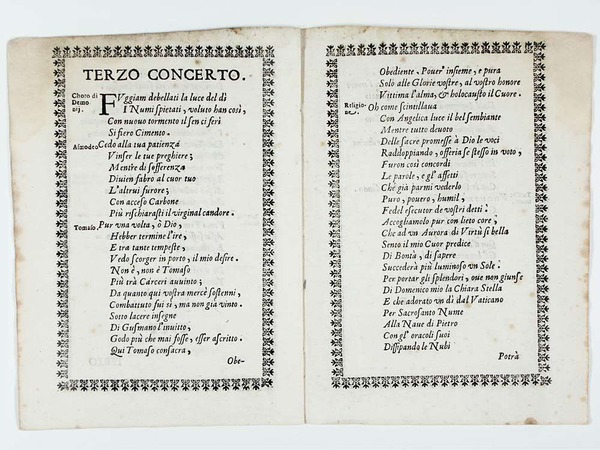 TERZO CONCERTO.
Choro di Demonij.
FVggiam debellati la luce del dì
I Numi spietati, voluto han così,
Con nuouo tormento il sen ci ferì
Si fiero Cimento.
Asmodeo Cedo alla tua patienza
Vinser le tue preghiere;
Mentre di sofferenza
Diuien fabro al cuor tuo
L'altrui furore;
Con acceso Carbone
Più reschiarasti il virginal candore.
Tomaso. Pur vna volta, ò Dio,
Hebber termine l'ire,
E tra tante tempeste,
Vedo scorger in porto, il mio desire.
Non è, non è Tomaso
Più trà Carceri auuinto;
Da quanto quì vostra mercè sostenni,
Combattuto fui sì, ma non già vinto.
Sotto lacere insegne
Di Gusmano l'inuitto,
Godo più che mai fosse, esser ascritto.
Qui Tomaso consacra,
Obe-
Obediente, Pouer' insieme, e pura
Solo alle Glorie vostre, al vostro honore
Vittima l'alma, & holocausto il Cuore.
Oh come scintillaua
Con Angelica luce il bel sembiante
Mentre tutto deuoto
Delle sacre promesse à Dio le voci
Raddoppiando, offeria se stesso in voto,
Furon così concordi
Le parole, e gl'affetti
Che già parmi vederlo
Puro, pouero, humil,
Fedel esecutor de vostri detti.
Accogliamolo pur con lieto core,
Che ad vn Aurora di Virtù sì bella
Sento il mio Cuor predice
Di Bontà, di sapere
Succederà più luminoso vn Sole.
Per portar gli splendori, oue non giunse
Di Domenico mio la Chiara Stella
E che adorato vn dì dal Vaticano
Per Sacrosanto Nume
Alla Naue di Pietro
Con gl'oracoli suoi
Dissipando le Nubi
Potrà